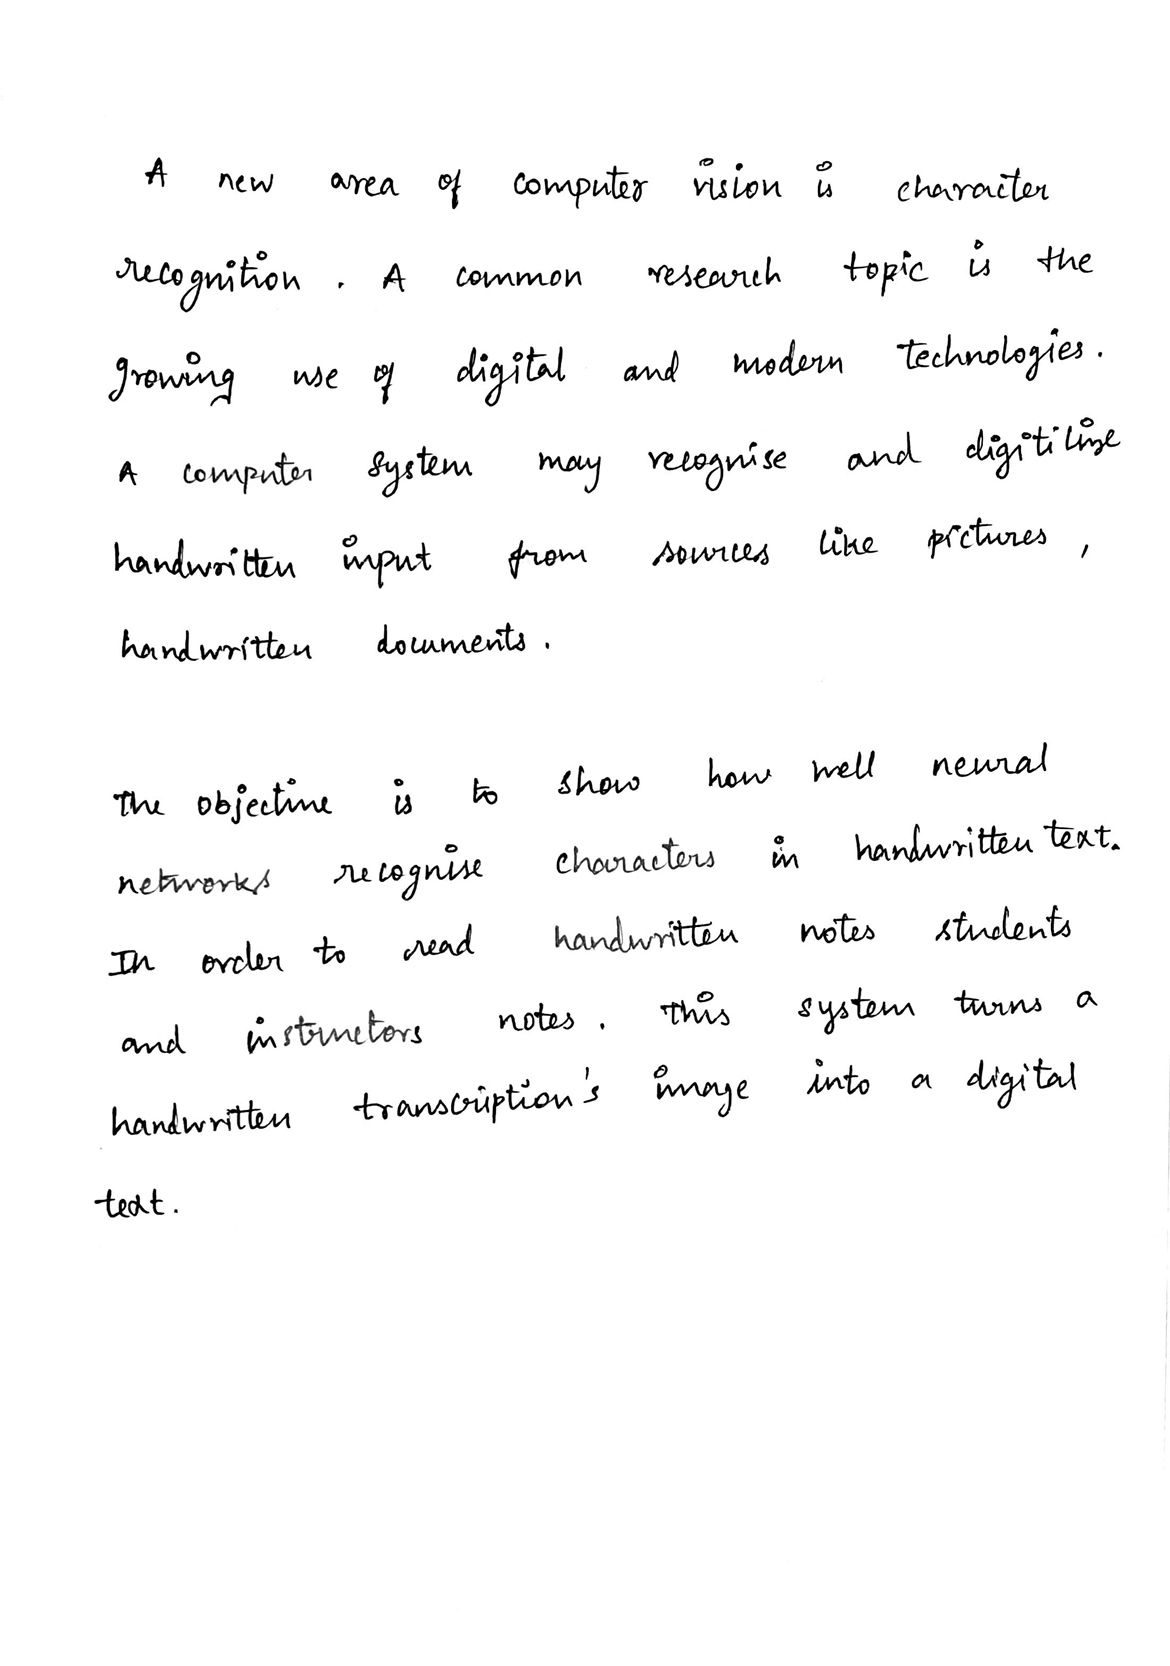 A new area of computer vision is character
recognition . A common research topic is the
growing use of digital and modern technologies.
A computer system may recognise and digitilize
handwritten input from sources like pictures ,
handwritten documents .
The objective is to show how well neural
networks recognise characters in handwritten text.
In order to read handwritten notes students
and instructors notes . This system turns a
handwritten transcription's image into a digital
text .